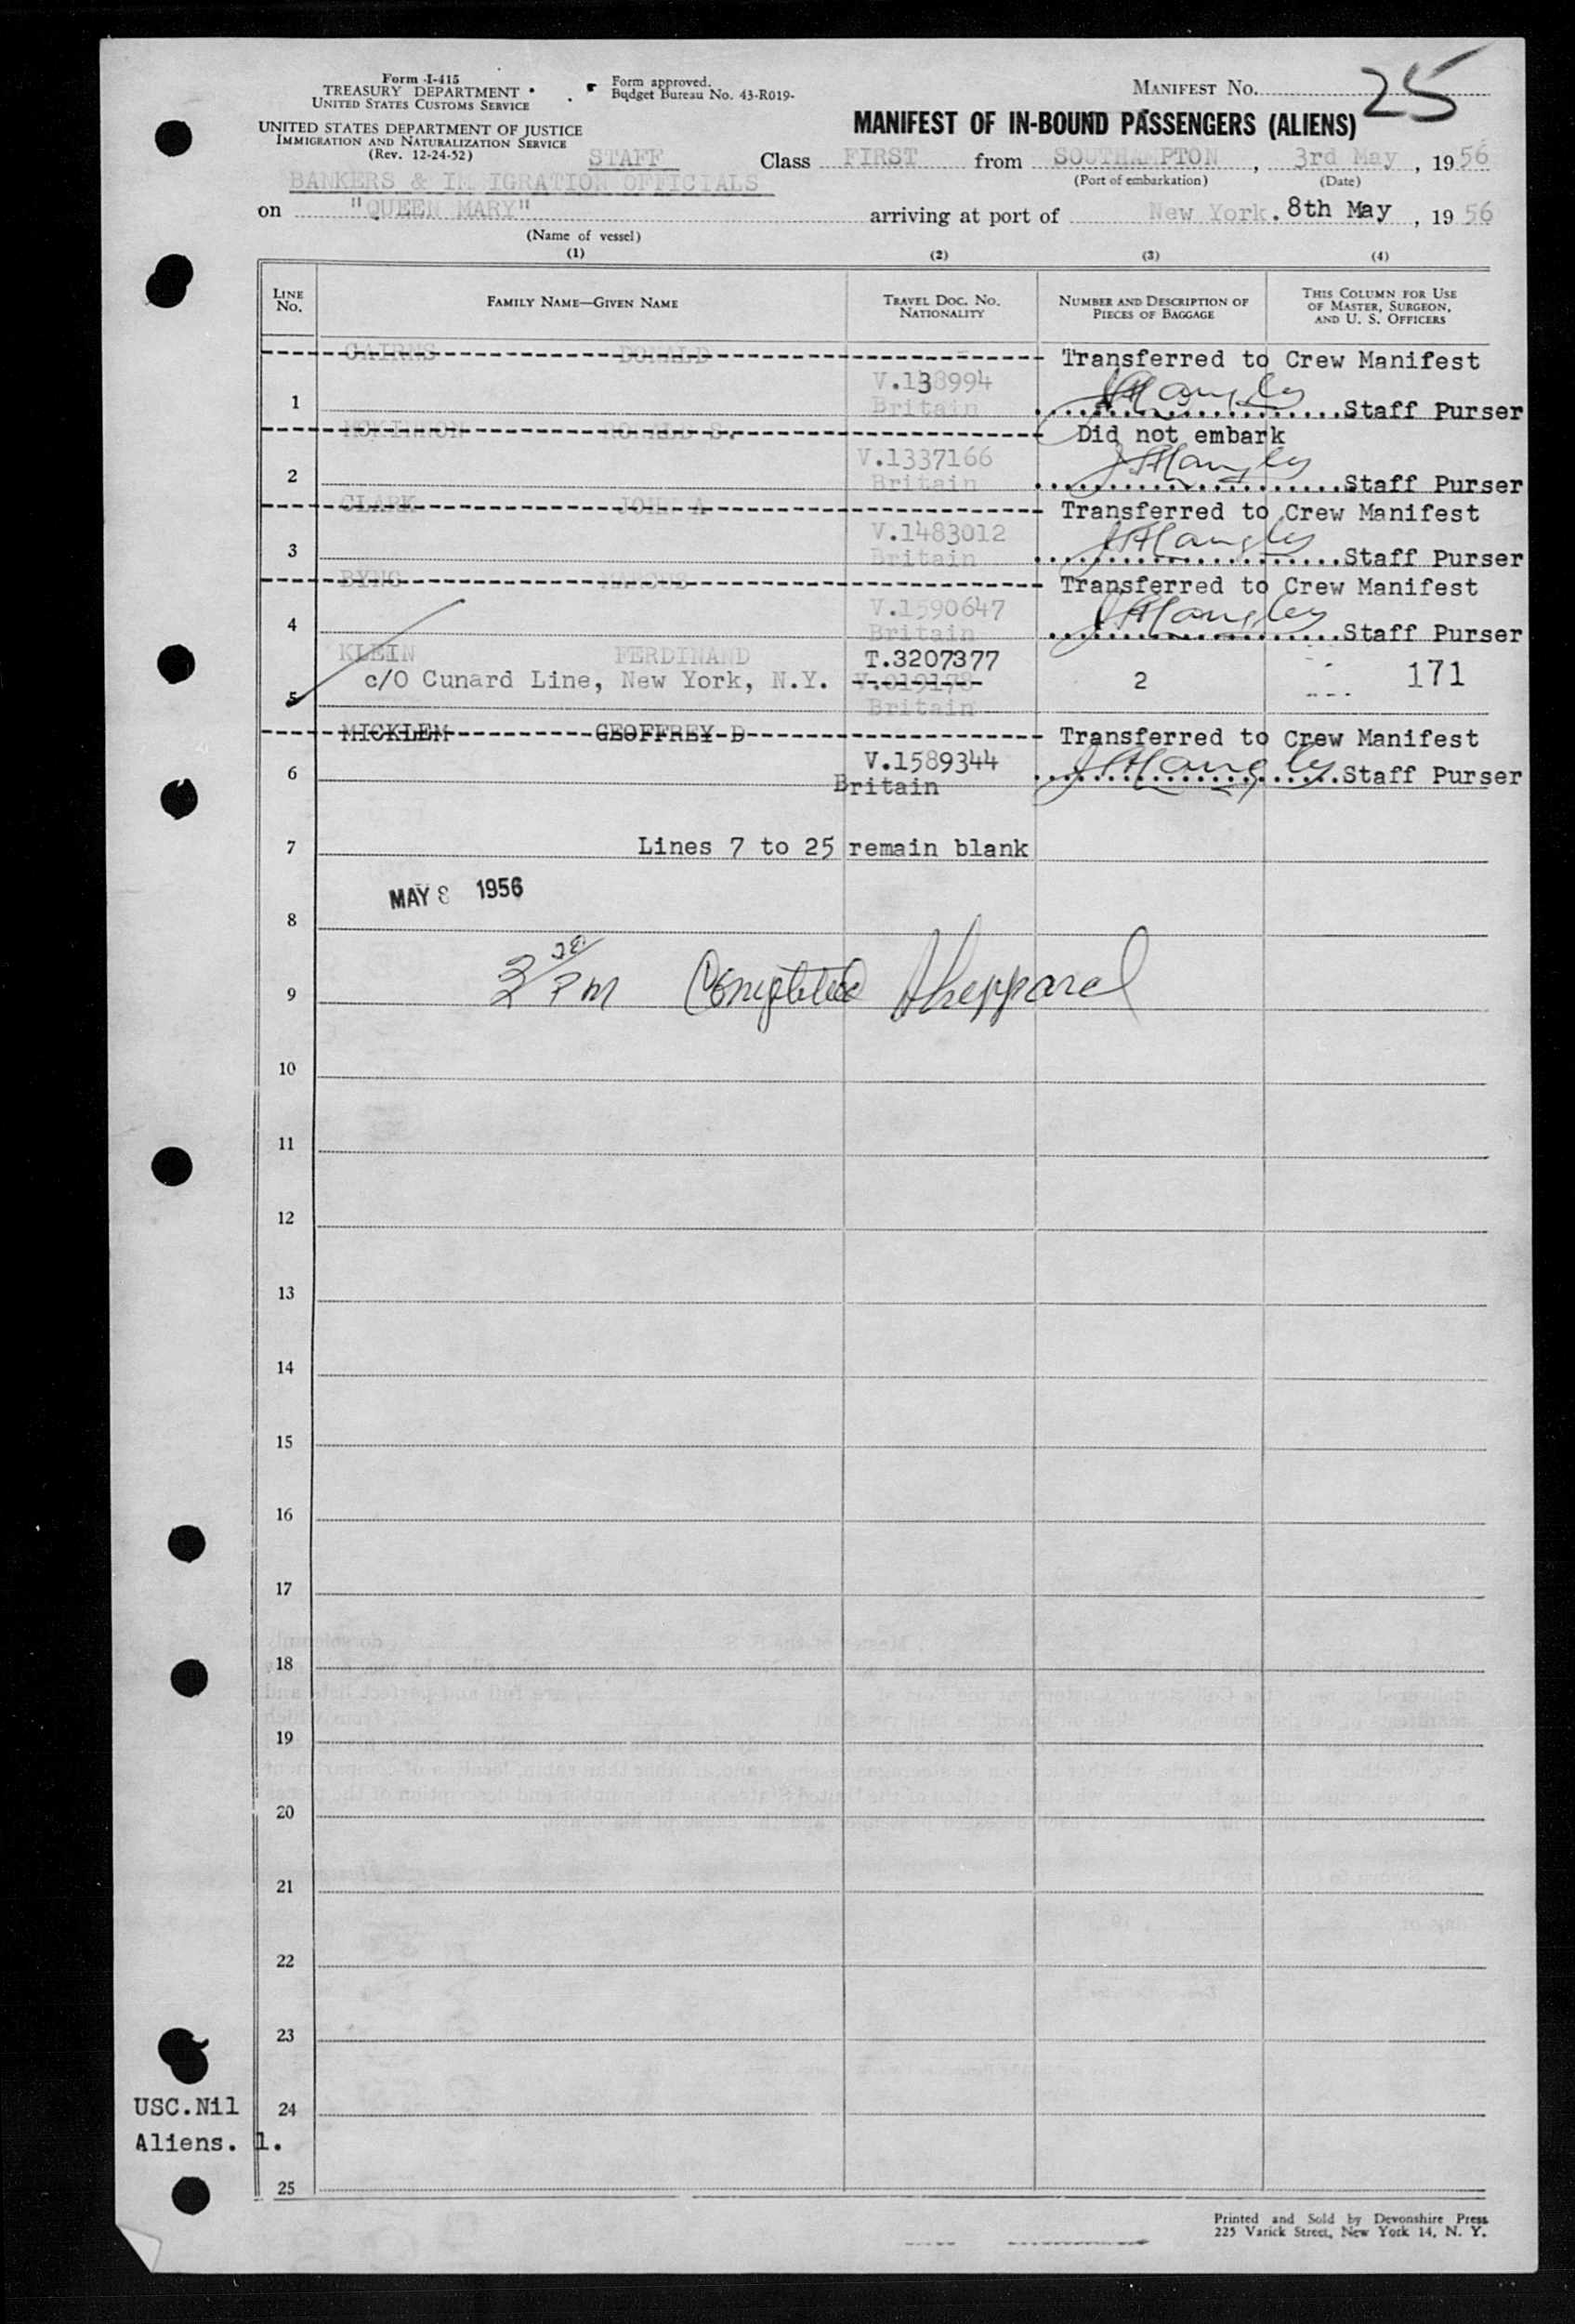 Form I-415
TREASURY DEPARTMENT
UNITED STATES CUSTOMS SERVICE
Form approved.
Budget Bureau No. 43-R019-
MANIFEST No. 25
UNITED STATES DEPARTMENT OF JUSTICE
IMMIGRATION AND NATURALIZATION SERVICE
(Rev. 12-24-52)
MANIFEST OF IN-BOUND PASSENGERS (ALIENS)
STAFF Class FIRST from SOUTHAMPTON, 3rd May, 1956
(Port of embarkation) (Date)
BANKERS & IM IGRATION OFFICIALS
on "QUEEN MARY" arriving at port of New York. 8th May, 1956
(Name of vessel)
(1) (2) (3) (4)
LINE No. FAMILY NAME—GIVEN NAME TRAVEL DOC. No. NATIONALITY NUMBER AND DESCRIPTION OF PIECES OF BAGGAGE THIS COLUMN FOR USE OF MASTER, SURGEON, AND U. S. OFFICERS
CAIRNS DONALD Transferred to Crew Manifest
V.138994
1 Britain Staff Purser
McKINNON RONALD S. Did not embark
V.1337166
2 Britain Staff Purser
CLARK JOHN A Transferred to Crew Manifest
V.1483012
3 Britain Staff Purser
BYNG MARCUS Transferred to Crew Manifest
V.1590647
4 Britain Staff Purser
KLEIN FERDINAND T.3207377
c/O Cunard Line, New York, N.Y. V.019178 2 171
5 Britain
MICKLEM GEOFFREY D Transferred to Crew Manifest
V.1589344
6 Britain Staff Purser
7 Lines 7 to 25 remain blank
MAY 8 1956
8
9 2 30 PM Completed Sheppard
10
11
12
13
14
15
16
17
18
19
20
21
22
23
USC.Nil 24
Aliens. 1.
25
Printed and Sold by Devonshire Press
225 Varick Street, New York 14, N. Y.